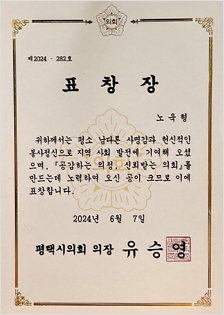 의회
제2024 - 282호
표 창 장
노 욱 형
귀하께서는 평소 남다른 사명감과 헌신적인
봉사정신으로 지역 사회 발전에 기여해 오셨
으며, 『공감하는 의정, 신뢰받는 의회』를
만드는데 노력하여 오신 공이 크므로 이에
표창합니다.
2024년 6월 7일
평택시의회 의장 유 승 영